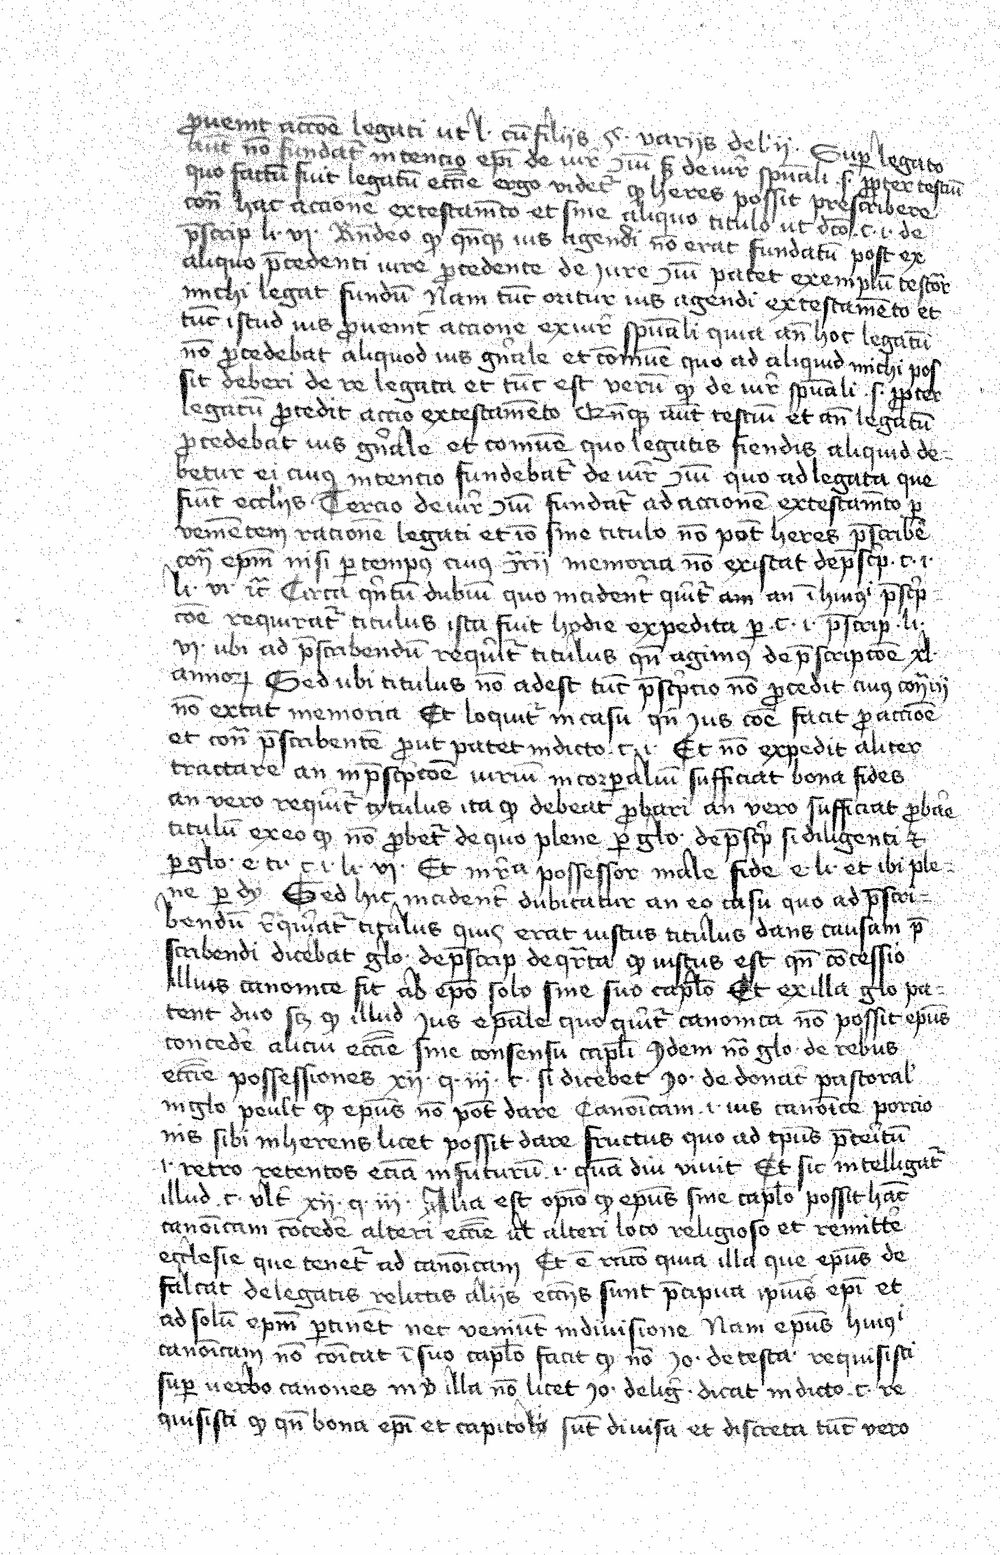 ꝓueniūt accōe legati ut l. cū filiis §. variis de l. ij. Suꝑ legato
aūt nō fundat᷑ intencio ep̄i de iur̄ ꝯiū sꝫ de iur̄ spūali .s. ꝓpter testiū
quo factū fuit legatū eccīe ergo videt᷑ ꝙ heres possit prescribere
con̄ hac accione ex testam̄to et sine aliquo titulo ut dc̄o .c. i. de
p̄scrip li. vi. Rn̄deo ꝙ qn̄qꝫ ius agendi nō erat fundatū post ex
aliquo p̄cedenti iure p̄cedente de iure ꝯiū patet exemplū testor̄
michi legat fundū Nam tūc oritur ius agendi ex testamēto et
tūc istud ius ꝓueniūt accione ex iur̄ spūali quia an̄ hoc legatū
nō p̄cedebat aliquod ius gn̄ale et comūe quo ad aliquid michi pos
sit deberi de re legata et tūc est verū ꝙ de iur̄ spūali .s. ꝓpter
legatū ꝓcedit accio ex testamēto Qn̄qꝫ aūt testiū et an̄ legatū
p̄cedebat ius gn̄ale et comūe quo legatis fiendis aliquid de-
betur ei cuius intencio fundebat᷑ de iur̄ ꝯiū quo ad legata que
fiūt eccliis Tercio de iur̄ ꝯiū fundat᷑ ad accionē ex testam̄to ꝓ
veniētem racionē legati et iō sine titulo nō pōt heres p̄scribē
con̄ epm̄ nisi ꝑ tempus cuius ꝯr̄ii memoria nō existat de p̄scp̄. c. i.
li. vi. it᷑ Circa qn̄tū dubiū quo incident̄ qrit᷑ am an ī huiꝰi p̄scp̄-
cōe requirat᷑ titulus ista fuit hodie expedita ꝑ .c. i. p̄scrip. li.
vi. ubi ad p̄scribendū requirit᷑ titulus qn̄ agimus de p̄scripcōe xl
annoꝝ Sed ubi titulus nō adest tūc p̄scripcio nō ꝓcedit cuius con̄ii
nō extat memoria Et loquit᷑ in casu qn̄ ius cōe facit ꝓ accōe
et con̄ p̄scribentē ꝓut patet in dicto .c. i. Et nō expedit aliter
tractare an in p̄scripcōe iuriū incorꝑaliū sufficiat bona fides
an vero requirit᷑ tytulus ita ꝙ debeat ꝓbari an vero sufficiat ꝓbare
titulū ex eo ꝙ nō ꝓbet᷑ de quo plene ꝑ glo. de p̄scp̄ si diligenti ⁊
ꝑ glo. e. ti. c. i. li. vi. Et in rͣ possessor male fide e. li. et ibi ple-
ne ꝑ dy Sed hic incident̄ dubitatur an eo casu quo ad p̄scri-
bendū requirat᷑ titulus quis erat iustus titulus dans causam p̄
scribendi dicebat glo. de p̄scrip de qrͣta ꝙ iustus est qn̄ cōcessio
illius canonice sit ab epo solo sine suo caplo Et ex illa glo pa-
tent duo scꝫ ꝙ illud ius epale quo qrit᷑ canonica nō possit epūs
concedē alicui eccīe sine consensu capli Idem nō glo. de rebus
eccīe possessiones xii. q. iii. c. si dicebet Io. de donat pastoral'
in glo pc̄ult ꝙ epūs nō pōt dare Canoīcam .i. ius canoīce porcio
nis sibi inherens licet possit dare fructus quo ad tpūs p̄teritū
.i. retro retentos eciā in futurū .i. quādiu viuit Et sic intelligat᷑
illud .c. vlt̄ xii. q. iii. Alia est opio ꝙ epūs sine caplo possit hāc
canoīcam cōcedē alteri eccīe ul̄ alteri loco religioso et remittē
ecclesie que tenet᷑ ad canoīcam Et ē racō quia illa que epūs de
falcat de legatis relictis aliis eccīis sunt p̄cipua ipiūs epi et
ad solū epm̄ ꝑtinēt nec veniūt in diuisione Nam epūs huiꝰi
canoīcam nō cōicat ī suo caplo facit ꝙ nō Io. de testa. requisisti
suꝑ uerbo canones in ꝟ illa nō licet Io. de liḡ. dicat in dicto .c. re
quisisti ꝙ qn̄ bona epi et capitolo sūt diuisa et discreta tūc vero